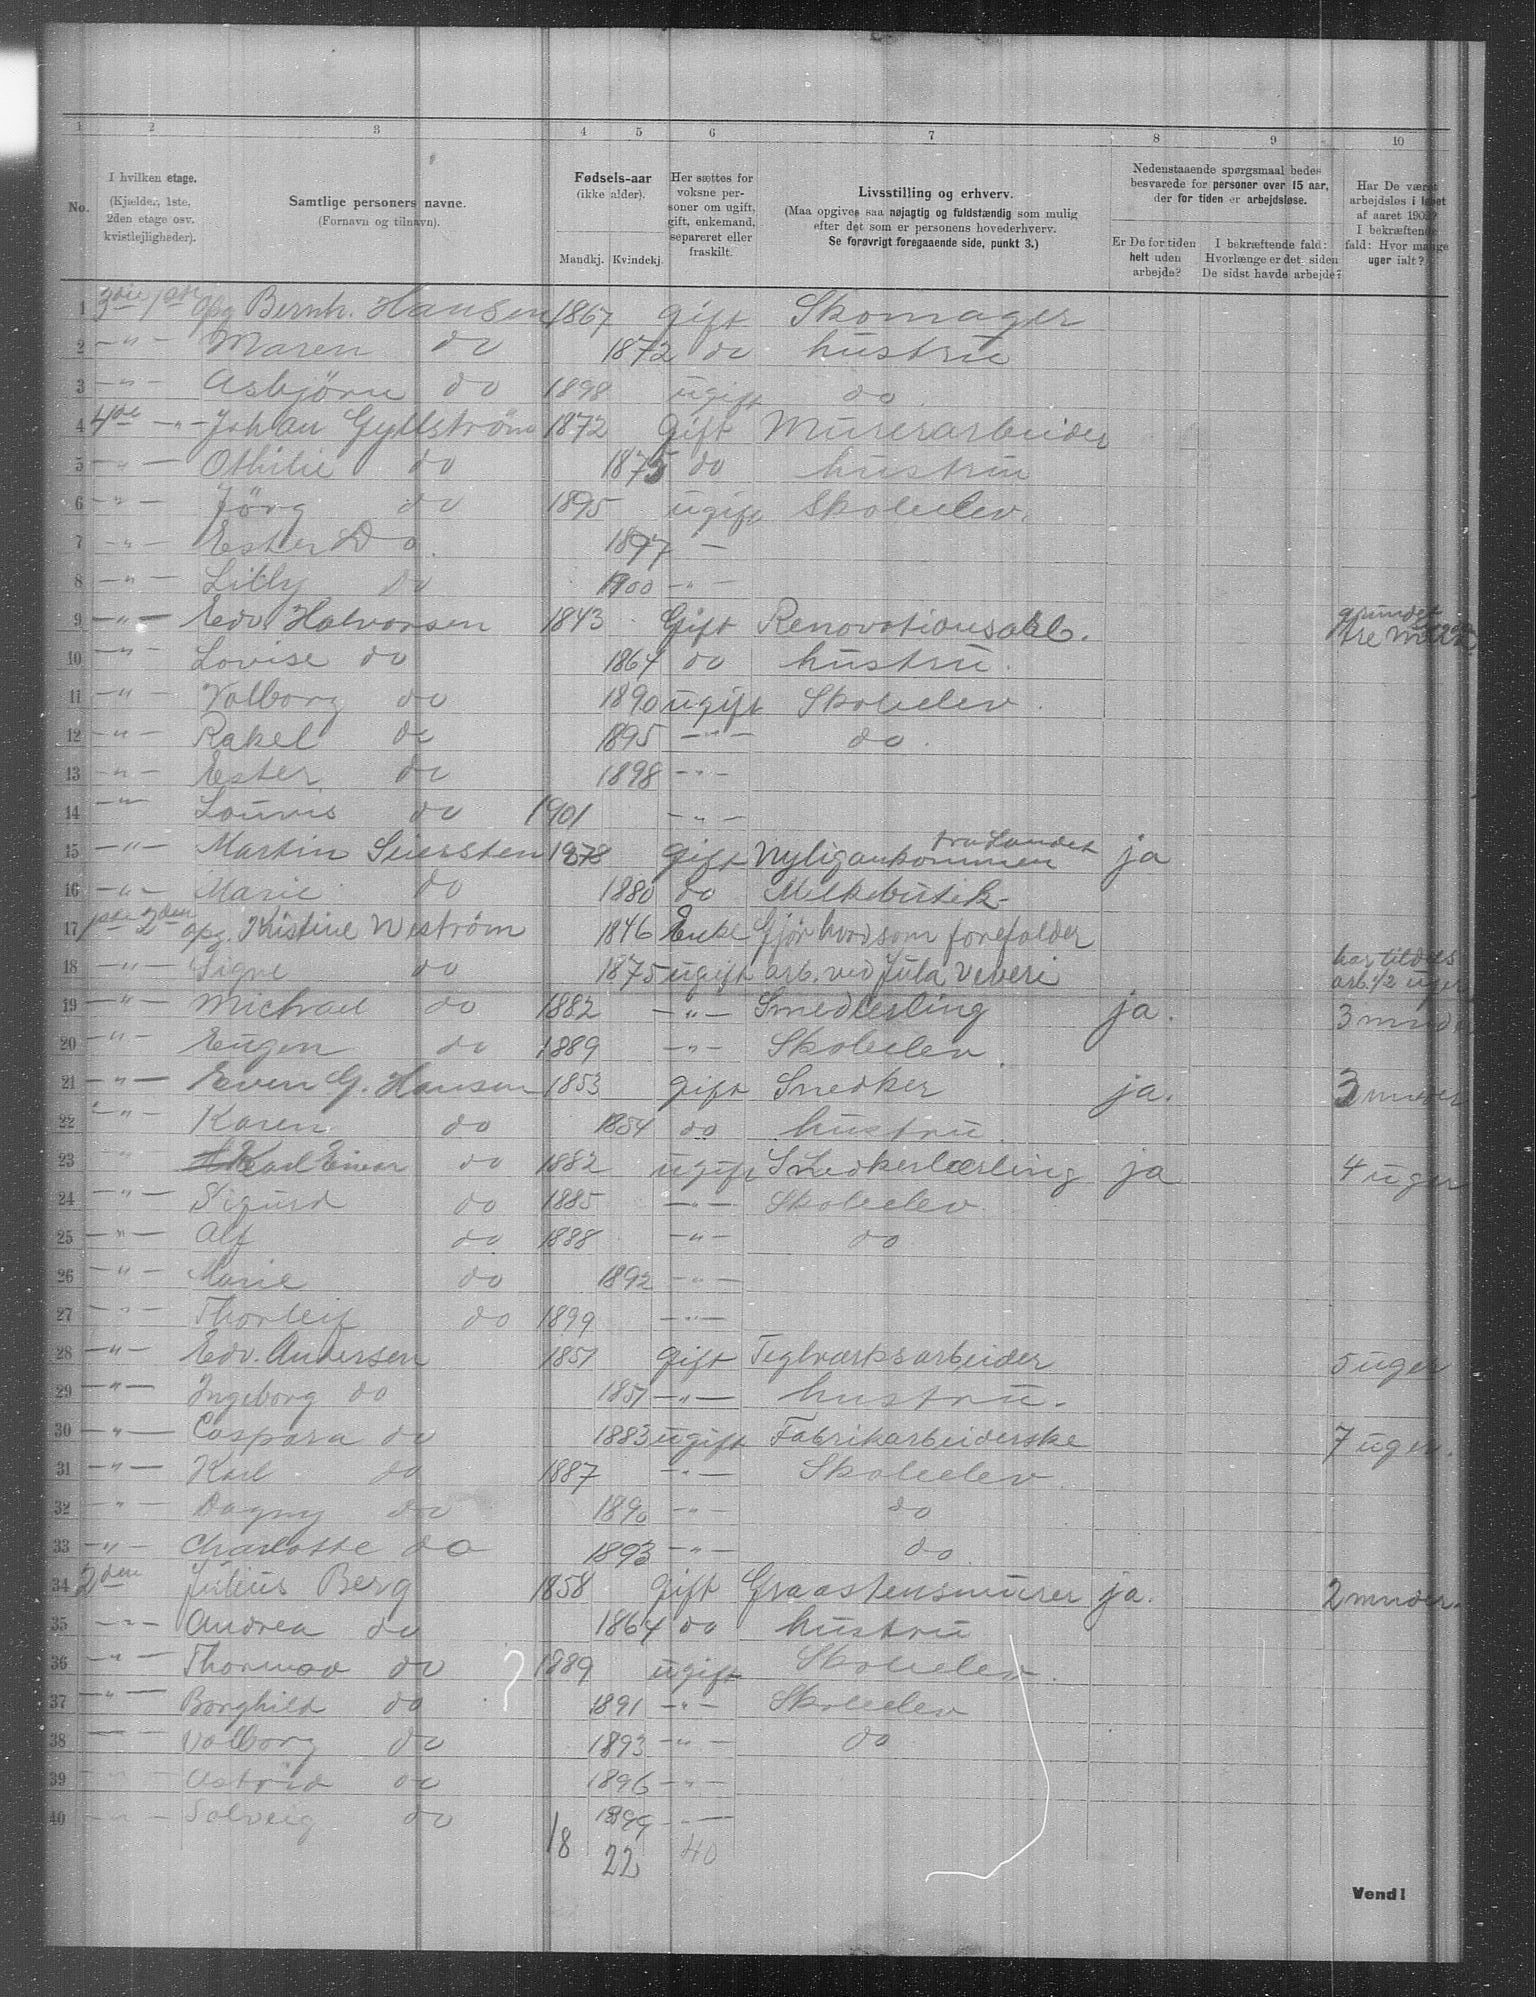 1 2 3 4 5 6 7 8 9 10
No.
I hvilken etage.
(Kjælder, 1ste,
2den etage osv.
kvistlejligheder).
Samtlige personers navne.
(Fornavn og tilnavn).
Fødsels-aar
(ikke alder).
Mandkj. Kvindekj.
Her sættes for
voksne per-
soner om ugift,
gift, enkemand,
separeret eller
fraskilt.
Livsstilling og erhverv.
(Maa opgives saa nøjagtig og fuldstændig som mulig
efter det som er personens hovederhverv.
Se forøvrigt foregaaende side, punkt 3.)
Nedenstaaende spørgsmaal bedes
besvarede for personer over 15 aar,
der for tiden er arbejdsløse.
Er De for tiden
helt uden
arbejde?
I bekræftende fald:
Hvorlænge er det siden
De sidst havde arbejde?
Har De været
arbejdsløs i løbet
af aaret 190?
I bekræftende
fald: Hvor mange
uger ialt?
1 3die 1ste opg Bernh. Hansen 1867 gift Skomager
2 -"- Maren do 1872 do hustru
3 -"- Asbjörn do 1898 ugift do
4 4de -"- Johan Gyllström 1872 gift Murerarbeider
5 -"- Othilie do 1875 do hustru
6 -"- Jörg do 1895 ugift Skoleelev.
7 -"- Ester Do. 1897 -
8 -"- Lilly do 1900 -"-
9 -"- Edv. Halvorsen 1843 Gift Renovationsarb. grundet
10 -"- Lovise do 1864 do hustru.
11 -"- Valborg do 1890 ugift Skoleelev.
12 -"- Rakel do 1895 -"- do.
13 -"- Ester do 1898 -"-
14 -"- Louvis do 1901 -"-
15 -"- Martin Seiersten 1878 gift Nyligankommen fra Landet ja
16 -"- Marie do 1880 do Melkebutik
17 1ste 2den opg. Kristine Weström 1846 Enke Gjör hvad som forefalder
18 -"- Signe do 1875 ugift arb. ved Jula Veveri har tildels arb. 1/2 uger
19 -"- Michael do 1882 -"- Smedlerling ja. 3 mnder
20 -"- Eugen do 1889 -"- Skoleelev.
21 -"- Even G. Hansen 1853 gift Snedker ja. 3 mnder
22 -"- Karen do 1854 do hustru.
23 -"- Karl Einar do 1882 ugift Snedkerlærling ja 4 uger
24 -"- Sigurd do 1885 -"- Skoleelev.
25 -"- Alf do 1888 -"- do
26 -"- Marie do 1892 -"-
27 -"- Thorleif do 1899 -"-
28 -"- Edv. Andersen 1851 gift Teglværksarbeider 5 uger
29 -"- Ingeborg do 1851 -"- hustru.
30 -"- Caspara do 1883 ugift Fabrikarbeiderske 7 uger.
31 -"- Karl do 1887 -"- Skoleelev.
32 -"- Dagny do 1890 -"- do
33 -"- Charlotte do 1893 -"- do.
34 2den Julius Berg 1858 gift Graastensmurer ja. 2 mnder.
35 -"- Andrea do 1864 do hustru
36 -"- Thormod do 1889 ugift Skoleelev.
37 -"- Borghild do 1891 -"- Skoleelev
38 Valborg do 1893 -"- do
39 -"- Astrid do 1896 -"-
40 -"- Solveig do 1899 -"-
18 22 40
Vend!